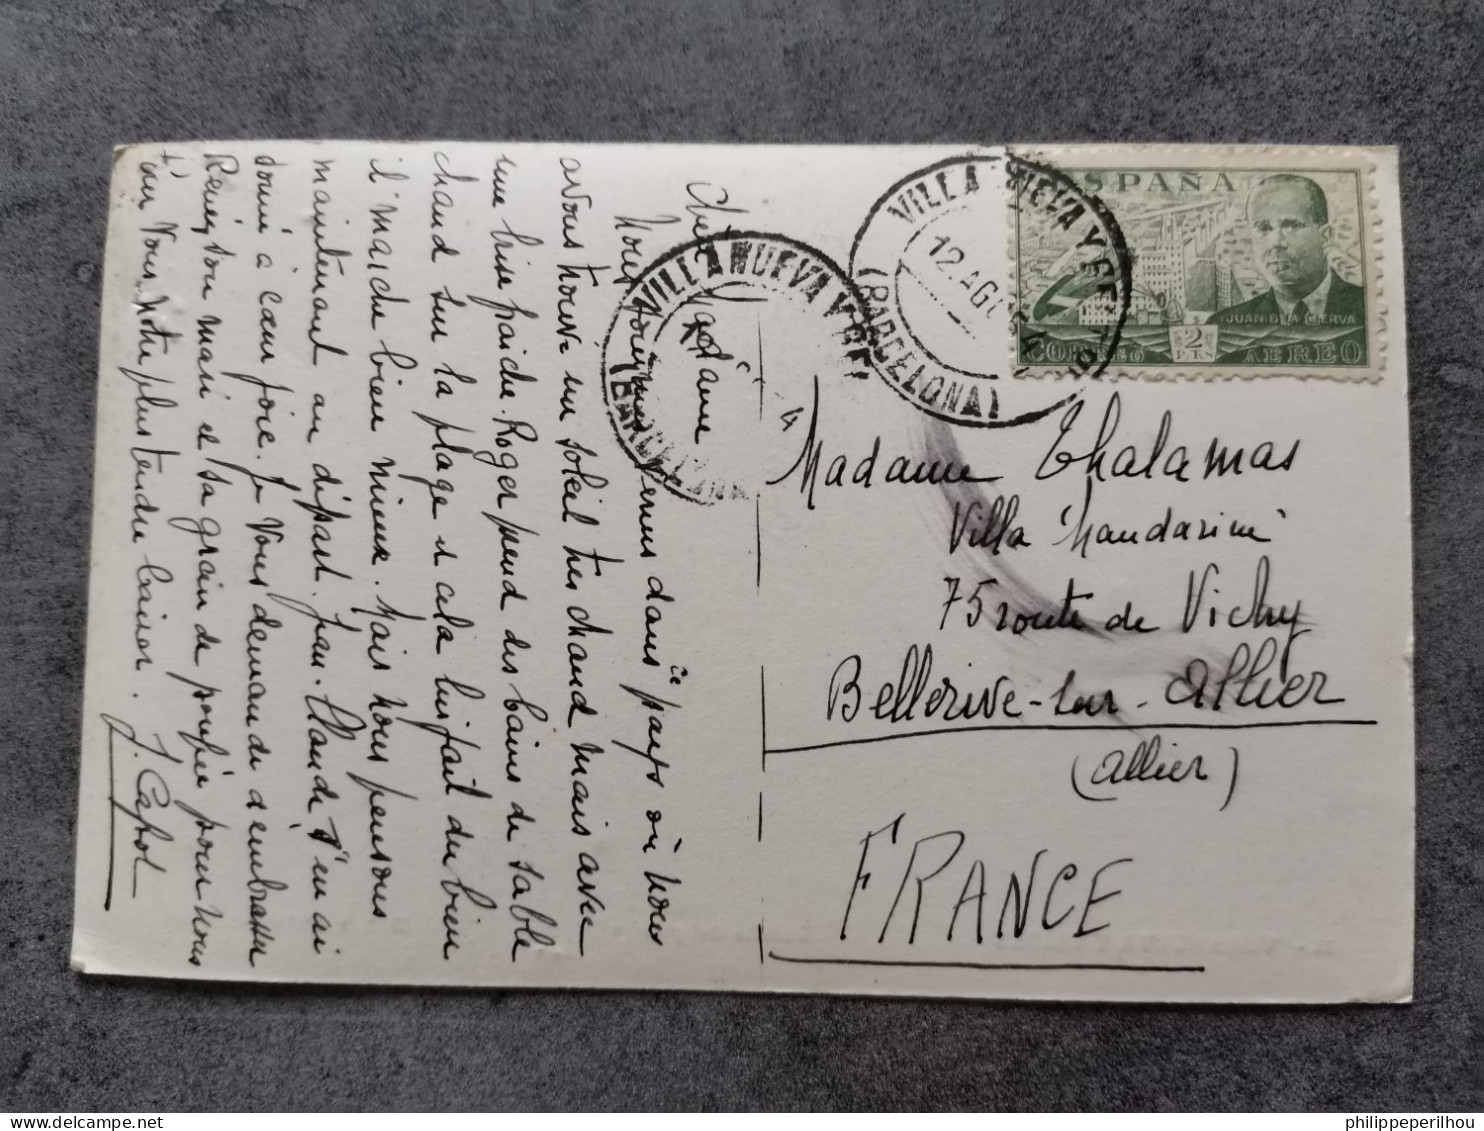 Chère Madame
Nous sommes venus dans ce pays où nous
avons trouvé un soleil très chaud mais avec
une brise fraiche. Roger prend des bains de sable
chaud sur la plage et cela lui fait du bien
il marche bien mieux. Mais nous pensons
maintenant au départ. Jean-Claude s'en ai
donné à cœur joie. Je vous demande d'embrasser
votre mari et sa
Votre plus tendre baiser. J.
VILLANUEVA Y GE
(BARCELONA)
4
VILLANUEVA Y GELTRU
12 AGO 54
(BARCELONA)
ESPAÑA
JUAN DE LA CIERVA
2
PTS
CORREO AEREO
Madame Thalamas
Villa "Mandarine"
75 route de Vichy
Bellerive-sur-Allier
(Allier)
FRANCE
delcampe.net
philippeperilhou